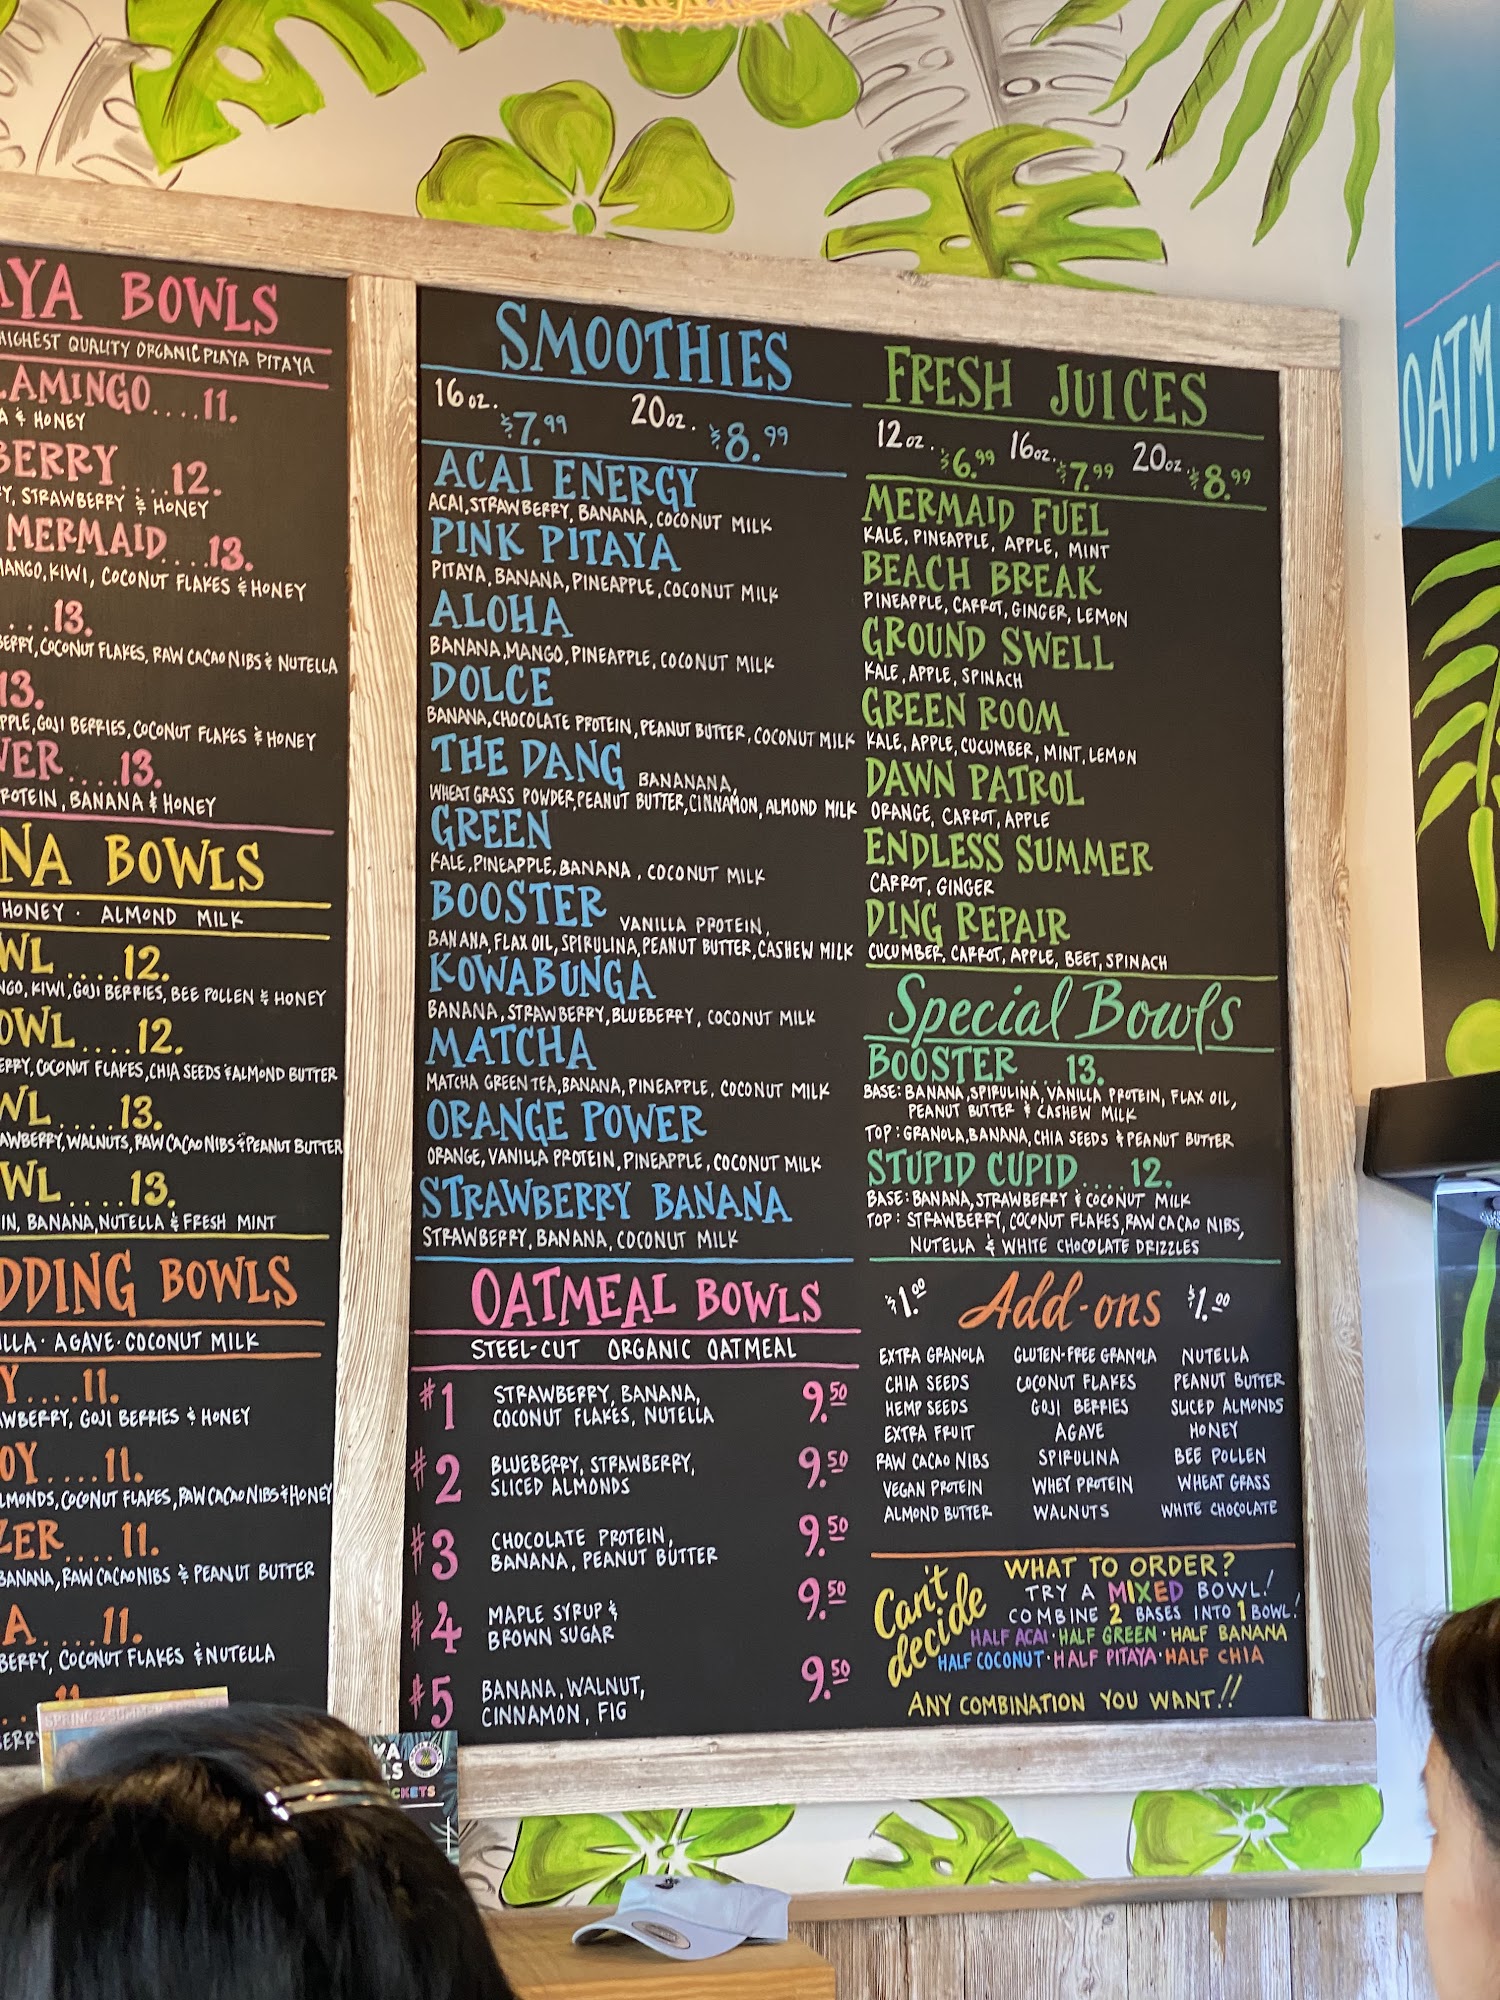 BOWLS
HIGHEST QUALITY ORGANIC PLAYA PITAYA
11.
& HONEY
12.
STRAWBERRY & HONEY
MERMAID....13.
KIWI, COCONUT FLAKES & HONEY
13.
COCONUT FLAKES, RAW CACAO NIBS & NUTELLA
13.
GOJI BERRIES, COCONUT FLAKES & HONEY
....13.
BANANA & HONEY
BOWLS
HONEY · ALMOND MILK
....12.
KIWI, GOJI BERRIES, BEE POLLEN & HONEY
....12.
COCONUT FLAKES, CHIA SEEDS & ALMOND BUTTER
....13.
WALNUTS, RAW CACAO NIBS & PEANUT BUTTER
....13.
BANANA, NUTELLA & FRESH MINT
BOWLS
AGAVE · COCONUT MILK
....11.
GOJI BERRIES & HONEY
....11.
COCONUT FLAKES, RAW CACAO NIBS & HONEY
....11.
BANANA, RAW CACAO NIBS & PEANUT BUTTER
....11.
COCONUT FLAKES & NUTELLA
SMOOTHIES
16 oz. $7.99 20 oz. $8.99
ACAI ENERGY
ACAI, STRAWBERRY, BANANA, COCONUT MILK
PINK PITAYA
PITAYA, BANANA, PINEAPPLE, COCONUT MILK
ALOHA
BANANA, MANGO, PINEAPPLE, COCONUT MILK
DOLCE
BANANA, CHOCOLATE PROTEIN, PEANUT BUTTER, COCONUT MILK
THE DANG BANANANA,
WHEAT GRASS POWDER, PEANUT BUTTER, CINNAMON, ALMOND MILK
GREEN
KALE, PINEAPPLE, BANANA, COCONUT MILK
BOOSTER VANILLA PROTEIN,
BANANA, FLAX OIL, SPIRULINA, PEANUT BUTTER, CASHEW MILK
KOWABUNGA
BANANA, STRAWBERRY, BLUEBERRY, COCONUT MILK
MATCHA
MATCHA GREEN TEA, BANANA, PINEAPPLE, COCONUT MILK
ORANGE POWER
ORANGE, VANILLA PROTEIN, PINEAPPLE, COCONUT MILK
STRAWBERRY BANANA
STRAWBERRY, BANANA, COCONUT MILK
OATMEAL BOWLS
STEEL-CUT ORGANIC OATMEAL
#1 STRAWBERRY, BANANA, 9.50
COCONUT FLAKES, NUTELLA
#2 BLUEBERRY, STRAWBERRY, 9.50
SLICED ALMONDS
#3 CHOCOLATE PROTEIN, 9.50
BANANA, PEANUT BUTTER
#4 MAPLE SYRUP & 9.50
BROWN SUGAR
#5 BANANA, WALNUT, 9.50
CINNAMON, FIG
FRESH JUICES
12 oz. $6.99 16 oz. $7.99 20 oz. $8.99
MERMAID FUEL
KALE, PINEAPPLE, APPLE, MINT
BEACH BREAK
PINEAPPLE, CARROT, GINGER, LEMON
GROUND SWELL
KALE, APPLE, SPINACH
GREEN ROOM
KALE, APPLE, CUCUMBER, MINT, LEMON
DAWN PATROL
ORANGE, CARROT, APPLE
ENDLESS SUMMER
CARROT, GINGER
DING REPAIR
CUCUMBER, CARROT, APPLE, BEET, SPINACH
Special Bowls
BOOSTER 13.
BASE: BANANA, SPIRULINA, VANILLA PROTEIN, FLAX OIL,
PEANUT BUTTER & CASHEW MILK
TOP: GRANOLA, BANANA, CHIA SEEDS & PEANUT BUTTER
STUPID CUPID....12.
BASE: BANANA, STRAWBERRY & COCONUT MILK
TOP: STRAWBERRY, COCONUT FLAKES, RAW CACAO NIBS,
NUTELLA & WHITE CHOCOLATE DRIZZLES
$1.00 Add-ons $1.00
EXTRA GRANOLA GLUTEN-FREE GRANOLA NUTELLA
CHIA SEEDS COCONUT FLAKES PEANUT BUTTER
HEMP SEEDS GOJI BERRIES SLICED ALMONDS
EXTRA FRUIT AGAVE HONEY
RAW CACAO NIBS SPIRULINA BEE POLLEN
VEGAN PROTEIN WHEY PROTEIN WHEAT GRASS
ALMOND BUTTER WALNUTS WHITE CHOCOLATE
Can't decide
WHAT TO ORDER?
TRY A MIXED BOWL!
COMBINE 2 BASES INTO 1 BOWL!
HALF ACAI · HALF GREEN · HALF BANANA
HALF COCONUT · HALF PITAYA · HALF CHIA
ANY COMBINATION YOU WANT!!
OATM